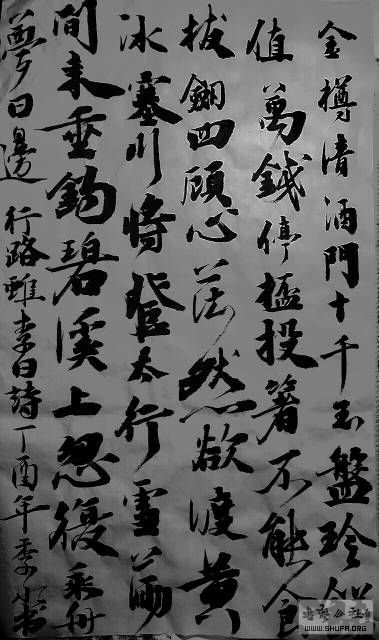 金樽清酒門十千玉盤珍饈
值萬錢停杯投箸不能食
拔劍四顧心茫然欲渡黃
冰塞川將登太行雪滿
閒來垂釣碧溪上忽復乘舟
夢日邊 行路難李白詩丁酉年季書
WWW.SHUFA.ORG